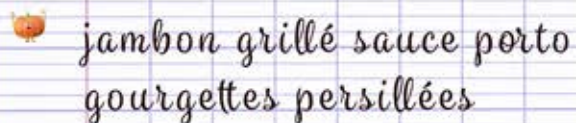 jambon grillé sauce porto
gourgettes persillées